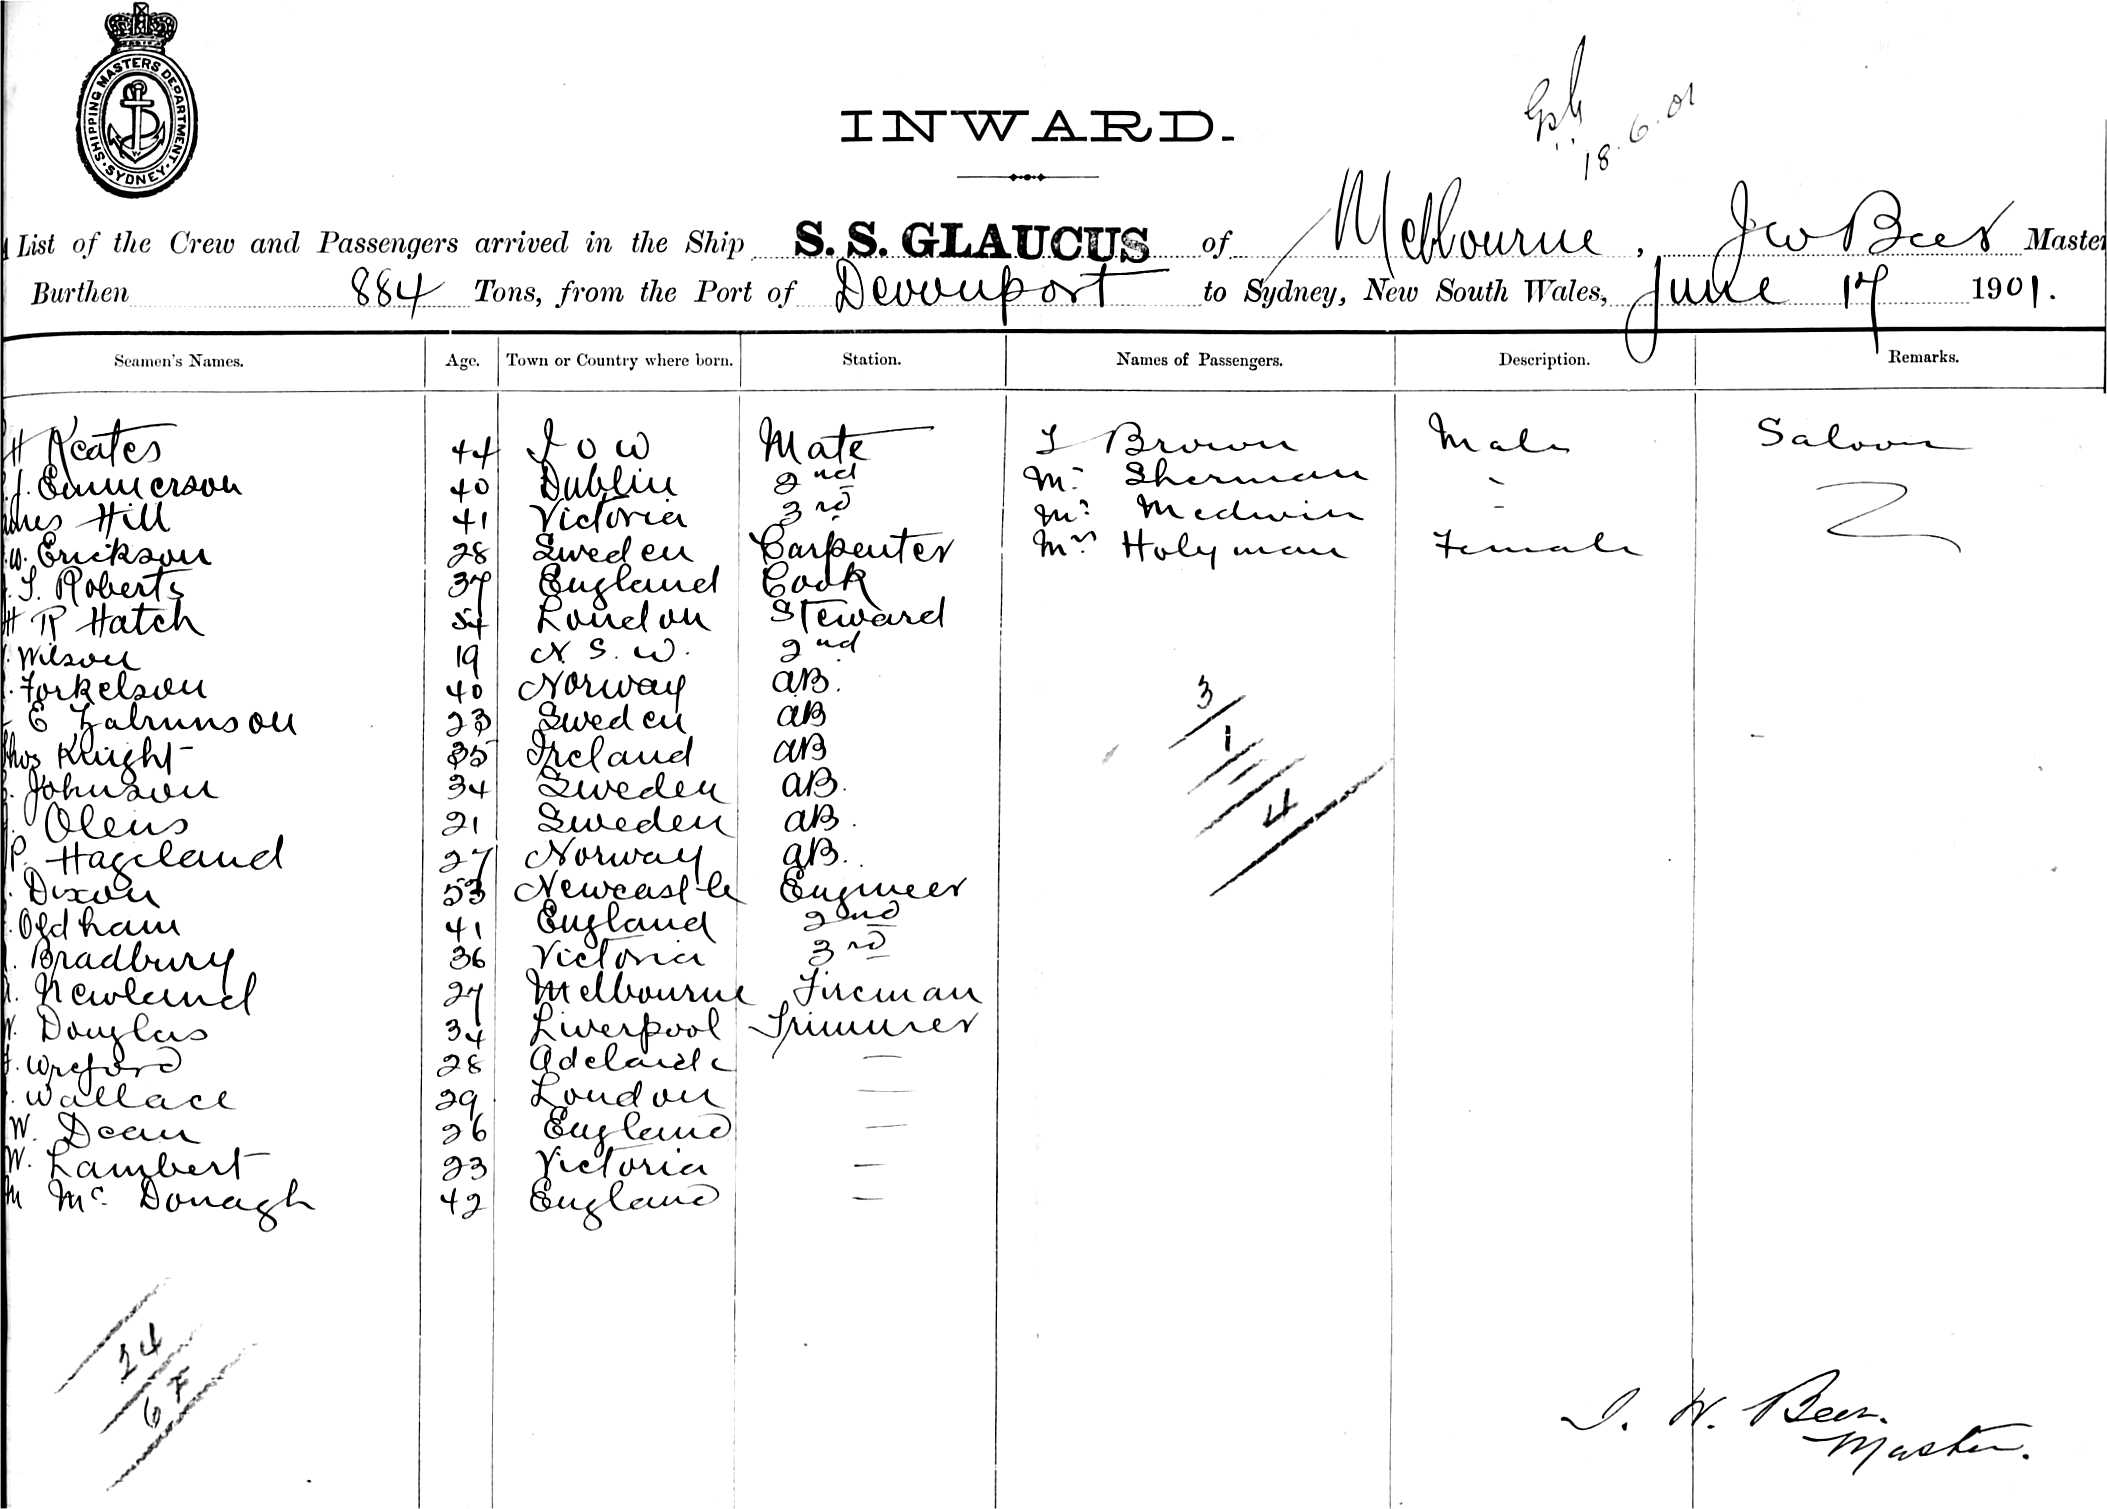 SHIPPING MASTERS DEPARTMENT. SYDNEY.
18.6.01
INWARD.
List of the Crew and Passengers arrived in the Ship S. S. GLAUCUS of Melbourne, J W Beer Master
Burthen 884 Tons, from the Port of Devonport to Sydney, New South Wales, June 17 1901.
Seamen's Names. Age. Town or Country where born. Station. Names of Passengers. Description. Remarks.
H Keates 44 I o W Mate Brown Male Saloon
J. Emmerson 40 Dublin 2nd Mr Sherman "
Hill 41 Victoria 3rd Mr Medwin "
W. Erickson 28 Sweden Carpenter Mrs Holyman Female
Roberts 37 England Cook
H R Hatch 54 London Steward
Wilson 19 N. S. W. 2nd
Torkelson 40 Norway AB.
E 23 Sweden AB
Thos Knight 35 Ireland AB
Johnson 34 Sweden AB.
Olens 21 Sweden AB.
P. Hageland 27 Norway AB.
Dixon 53 Newcastle Engineer
Oldham 41 England 2nd
Bradbury 36 Victoria 3rd
Newland 27 Melbourne Fireman
W. Douglas 34 Liverpool Trimmer
Wreford 28 Adelaide —
Wallace 29 London —
W. Dean 26 England —
W. Lambert 23 Victoria —
M McDonagh 42 England —
3
1
4
24
J. W. Beer.
Master.